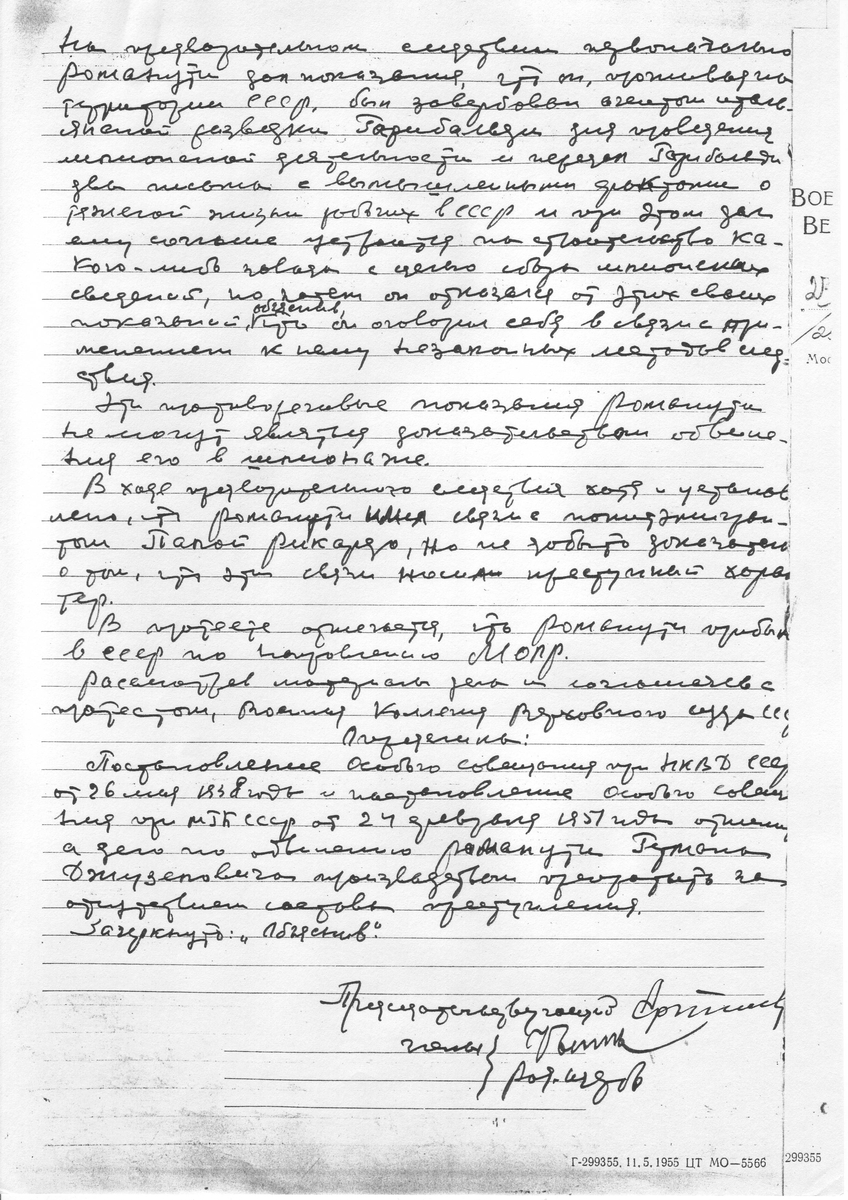 На предварительном следствии первоначально
Романути дал показания, что он, проживая на
территории СССР, был завербован агентом италь-
янской разведки Гарибальди для проведения
шпионской деятельности и передал Гарибальди
два письма с вымышленными фактами о
тяжелой жизни рабочих в СССР и при этом дал
ему согласие устроится на строительство ка-
кого-либо завода с целью сбора шпионских
сведений, но затем он отказался от этих своих
объяснив,
показаний, что он оговорил себя в связи с при-
менением к нему незаконных методов след-
ствия.
Эти противоречивые показания Романути
не могут являться доказательством обвине-
ния его в шпионаже.
В ходе предварительного следствия хотя и установ
лено, что Романути имел связи с политэмигран-
том Папой Рикардо, но не добыто доказатель
о том, что эти связи носили преступный харак
тер.
В протесте отмечается, что Романути прибыл
в СССР по направлению МОПР.
Рассмотрев материалы дела и соглашаясь с
протестом, Военная Коллегия Верховного суда ССС
определила:
Постановление Особого совещания при НКВД СССР
от 26 мая 1938 года и постановление Особого совещ
ния при МГБ СССР от 24 февраля 1951 года отмени
а дело по обвинению Романути Гумана
Джузеповича производством прекратить за
отсутствием состава преступления.
Зачеркнуто: „Объяснив".
Председательствующий
члены
ВОЕ
ВЕ
Мос
Г-299355. 11.5.1955 ЦТ МО—5566
299355